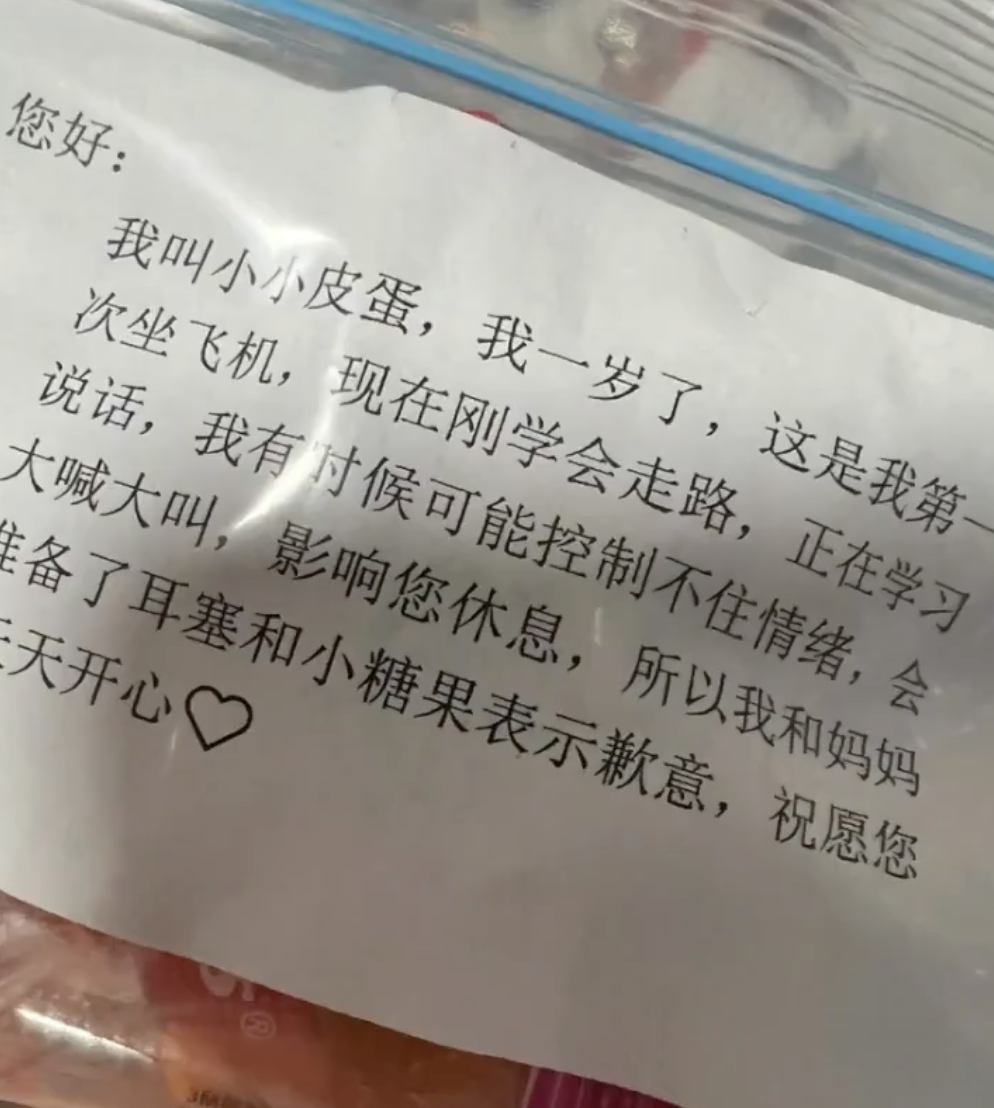 您好：
我叫小小皮蛋，我一岁了，这是我第一
次坐飞机，现在刚学会走路，正在学习
说话，我有时候可能控制不住情绪，会
大喊大叫，影响您休息，所以我和妈妈
准备了耳塞和小糖果表示歉意，祝愿您
天天开心♡
3M